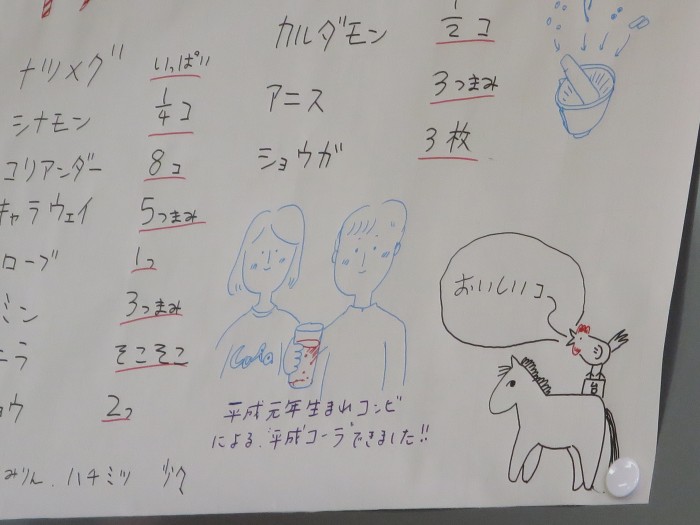 ナツメグ いっぱい
シナモン 1/4コ
コリアンダー 8コ
キャラウェイ 5つまみ
ローブ 1コ
ミン 3つまみ
ニラ そこそこ
ョウ 2コ
みりん、ハチミツ 少々
カルダモン 1/2コ
アニス 3つまみ
ショウガ 3枚
Cola
平成元年生まれコンビ
による、平成コーラできました!!
おいしいコ
台